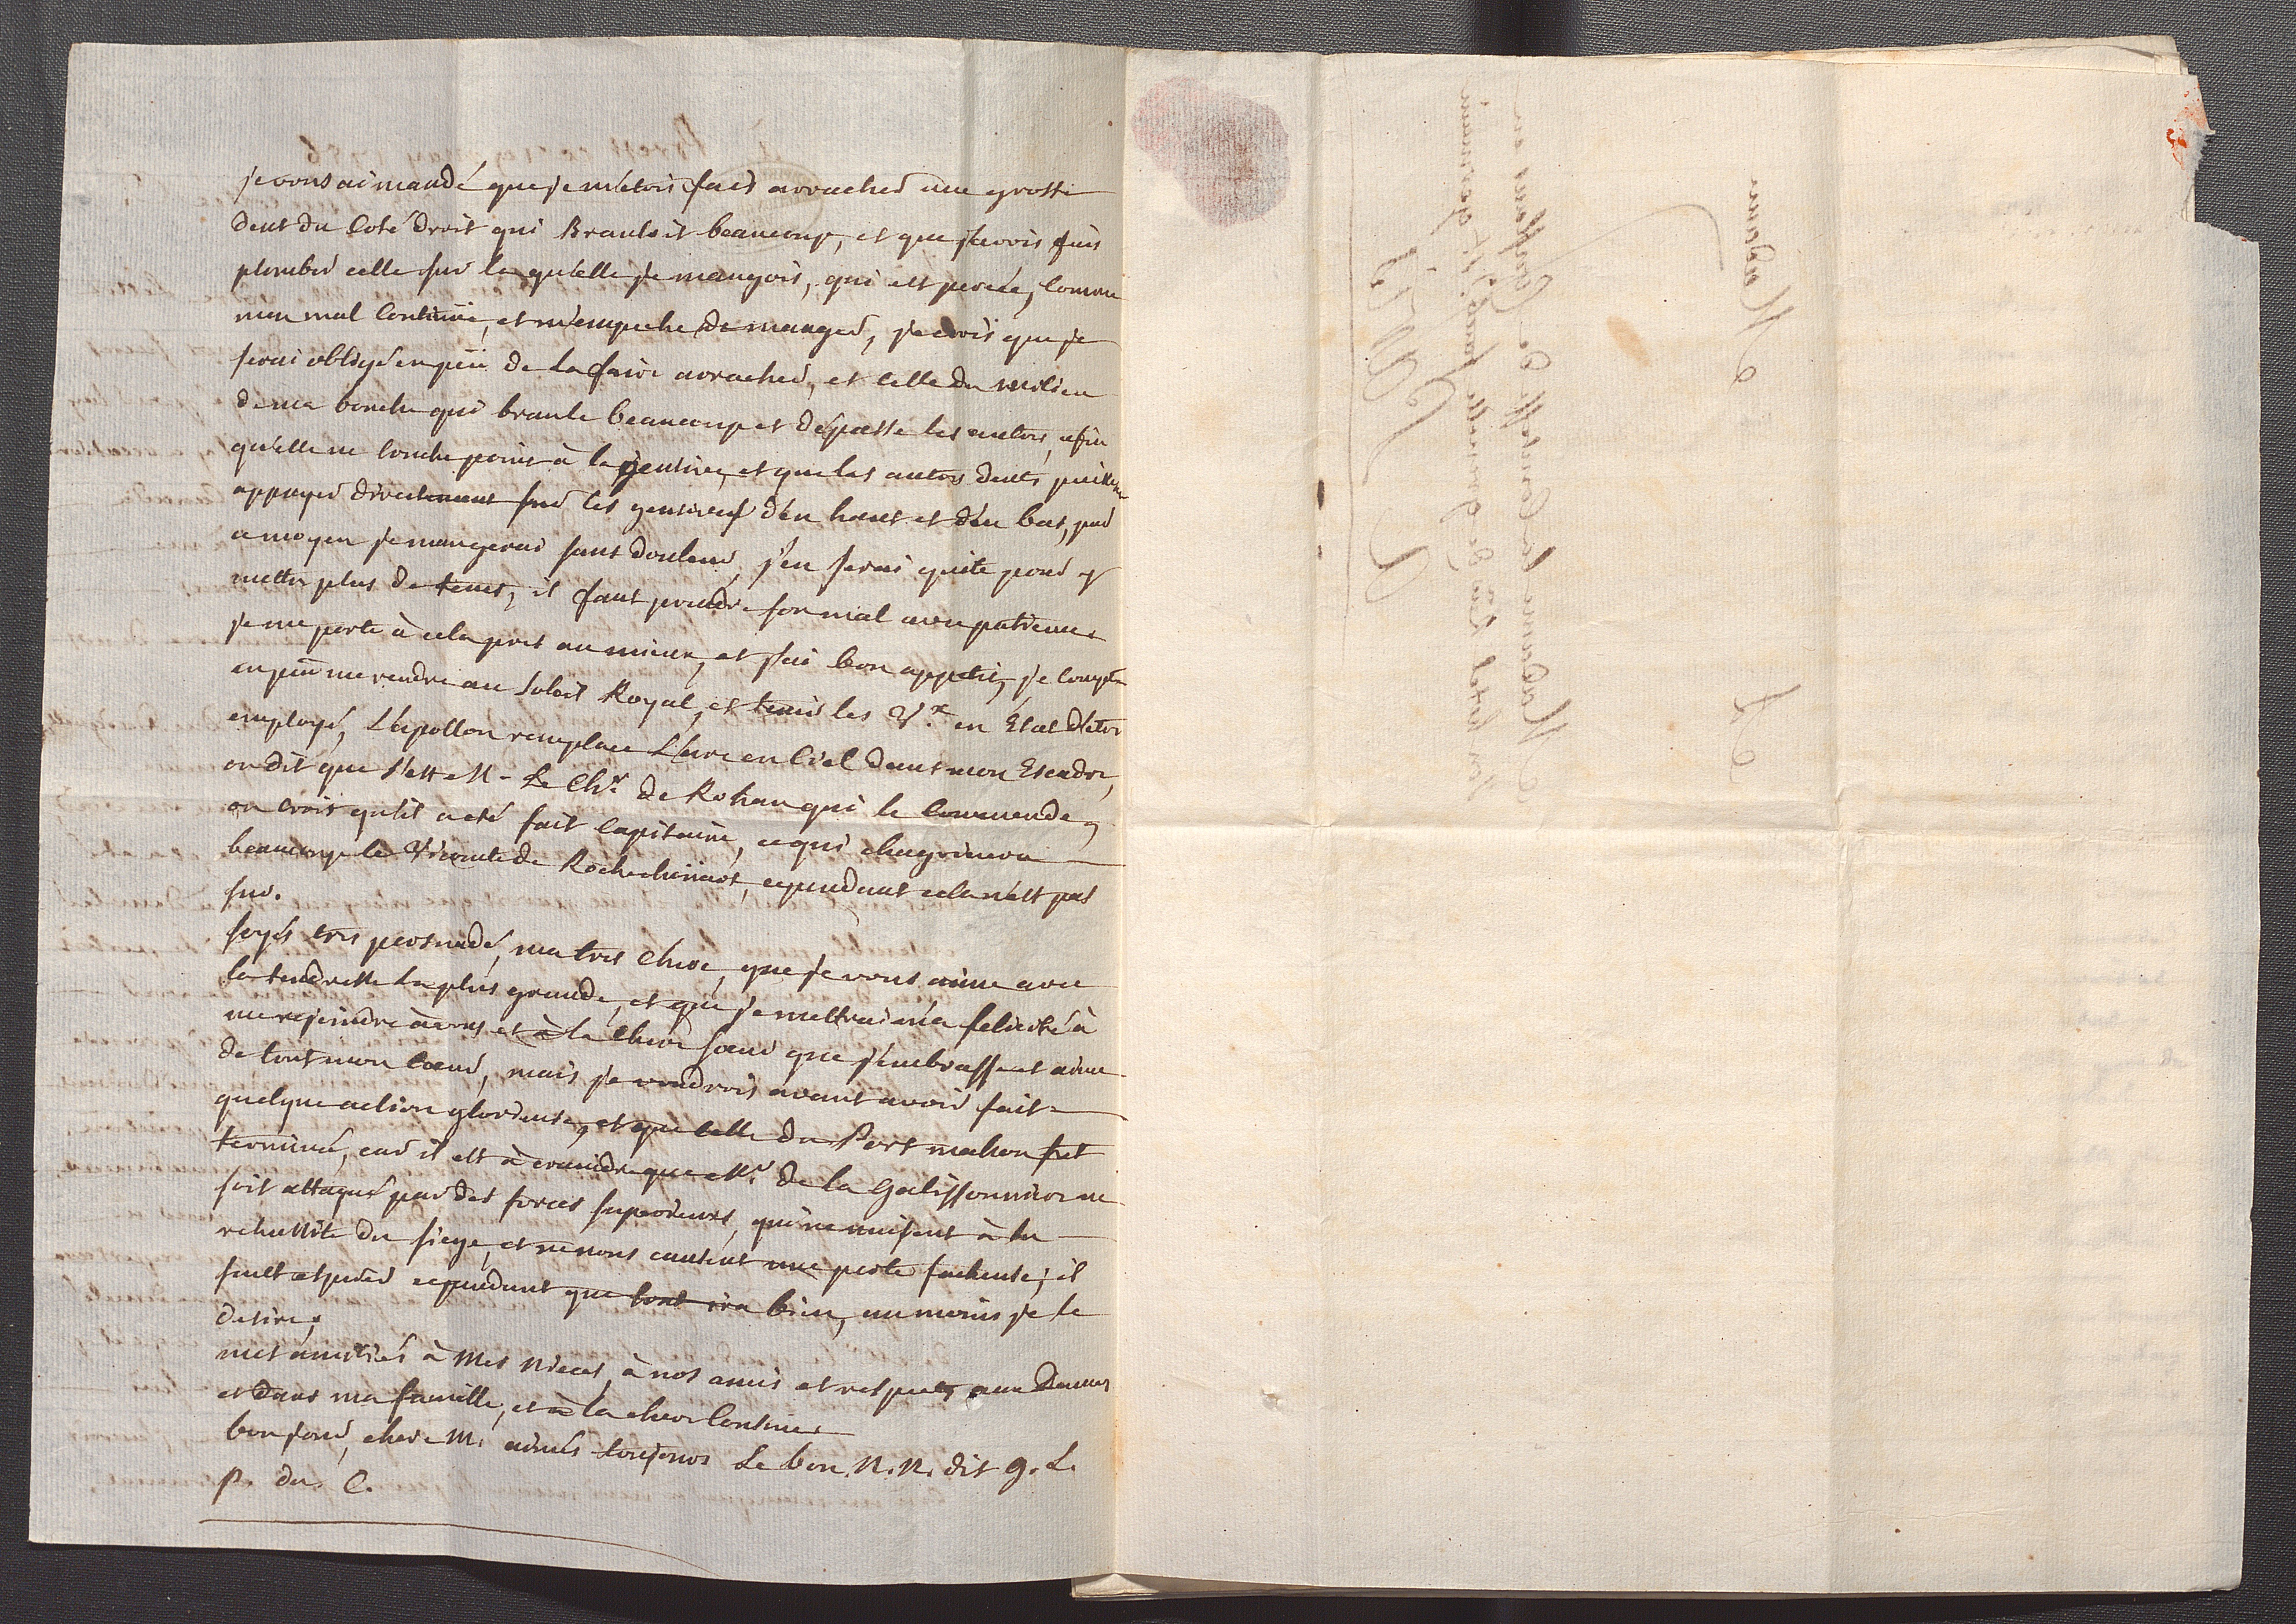 je vous ai mandé que je m'étois fait arracher une grosse
dent du Coté droit qui Branloit beaucoup, et que j'avois fait
plomber celle sur laquelle je mangois, qui est percée, comme
mon mal Continüe, et m'empeche de manger, je crois que je
serai obligé en peü de la faire arracher, et celle du milieu
de ma bouche qui branle beaucoup et dépasse les autres, afin
qu'elle ne touche point à la gencive, et que les autres dents puissent
appuyer directement sur les gencives d'en haut et d'en bas, par
ce moyen je mangerai sans douleur, j'en serai quite pour y
mettre plus de tems, il faut prendre son mal avec patience
je me porte à cela pres au mieux, et j'ai bon appetit, je compte
en peü me rendre au Soleil Royal, et tenir les V.x en Etat d'etre
employé, L'apollon remplace L'arc en Ciel dans mon Escadre,
on dit que c'est M. Le Ch.r de Rohan qui le Commende,
on crois qu'il a eté fait Capitaine, ce qui chagrinera
beaucoup le Vicomte de Rochechouart, cependant cela n'est pas
sur.
soyés tres persuadé, ma tres Chere, que je vous aime avec
la tendresse la plus grande, et que je mettrai ma felicité à
me rejoindre à vous et à la Chere sœur que j'embrasse et aime
de tout mon Cœur, mais je voudrois avant avoir fait
quelque action glorieuse, et que celle du Port mahon fut
terminé, car il est à craindre que M.r de la Galissonniere ne
soit attaqué par des forces superieures, qui ne nuisent à la
reussite du siege, et ne nous causent une perte facheuse; il
faut esperer cependant que tout ira bien, au moins je le
desire.
mes amitiés à Mes Nieces, à nos amis et respects aux Dames
et dans ma famille, et à la chere Cousine
bon soir, chere M. aimés toujours Le bon N. N. dit g. L.
P. du C.
Madame